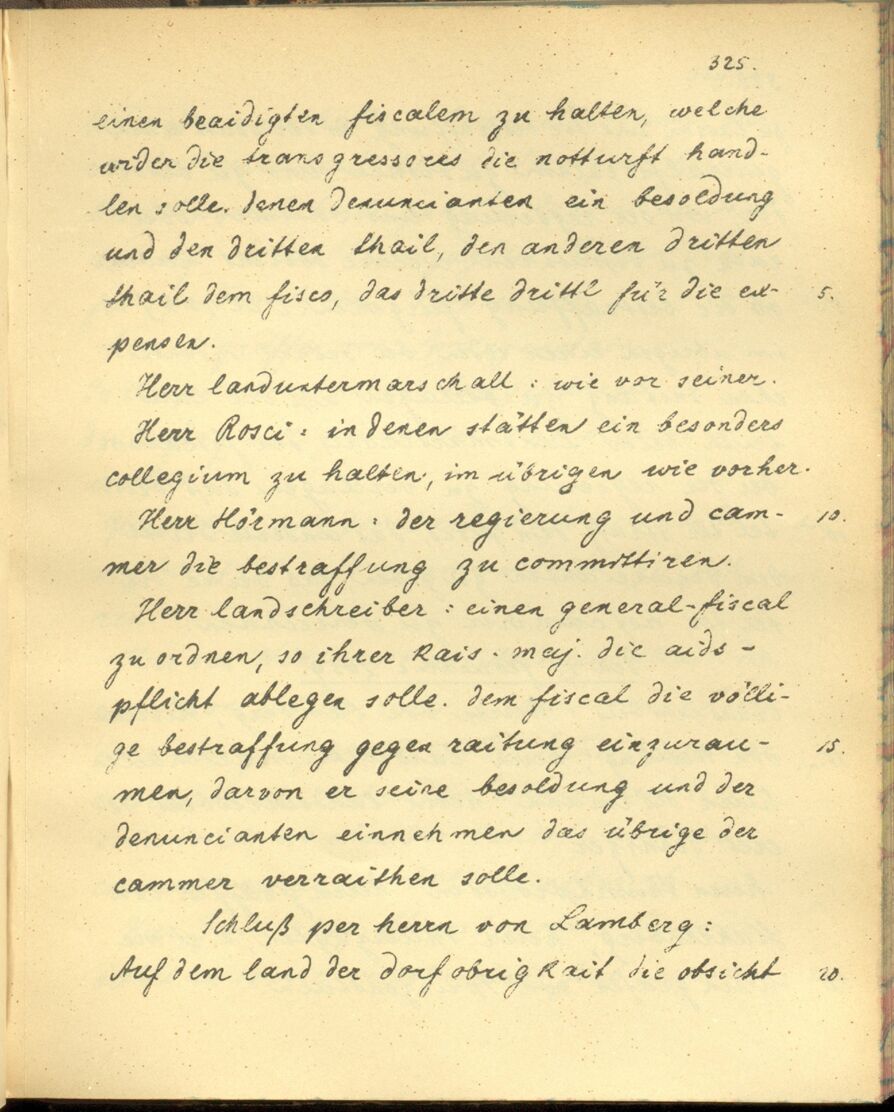 325.
einen beaidigten fiscalem zu halten, welche
wider die transgressores die notturft hand-
len solle. denen denuncianten ein besoldung
und den dritten thail, den anderen dritten
thail dem fisco, das dritte drittl für die ex- 5.
pensen.
Herr landuntermarschall : wie vor seiner.
Herr Rosci : in denen stätten ein besonders
collegium zu halten, im übrigen wie vorher.
Herr Hörmann : der regierung und cam- 10.
mer die bestraffung zu committiren.
Herr landschreiber : einen general-fiscal
zu ordnen, so ihrer Kais. maj. die aids-
pflicht ablegen solle. dem fiscal die völli-
ge bestraffung gegen raitung einzurau- 15.
men, darvon er seine besoldung und der
denuncianten einnehmen das übrige der
cammer verraithen solle.
Schluß per herrn von Lamberg :
Auf dem land der dorfobrigkait die obsicht 20.